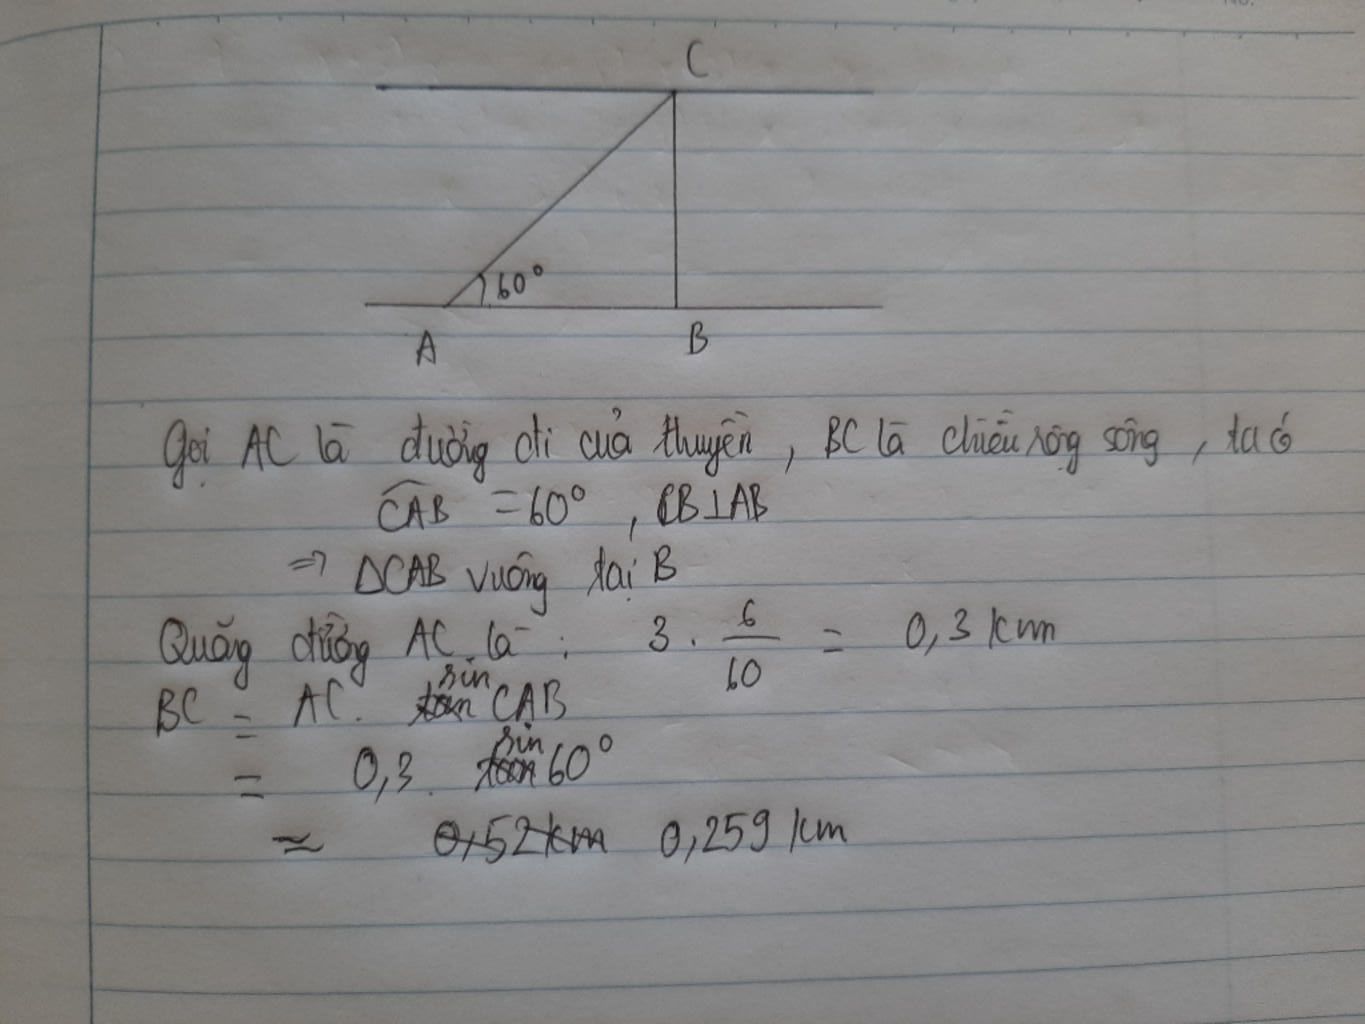 C
60°
A B
Gọi AC là đường đi của thuyền, BC là chiều rộng sông, ta có
CAB = 60°, CB⊥AB
=> ΔCAB vuông tại B
Quãng đường AC là: 3 . 6/60 = 0,3 km
BC = AC. sin CAB
= 0,3. sin 60°
≈ 0,52km 0,259 km